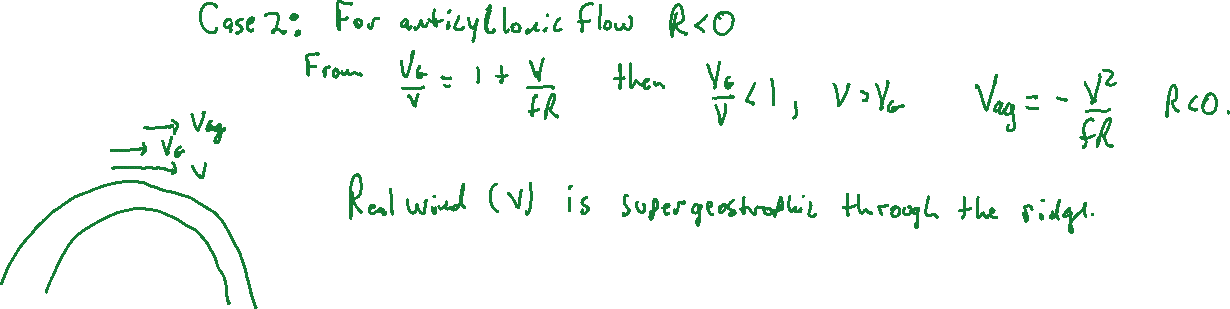 Case 2: For anticyclonic flow R<0
From V_G/V = 1 + V/fR then V_G/V < 1, V > V_G V_ag = - V²/fR R<0.
V_ag
V_G
V
Real wind (V) is supergeostrophic through the ridge.